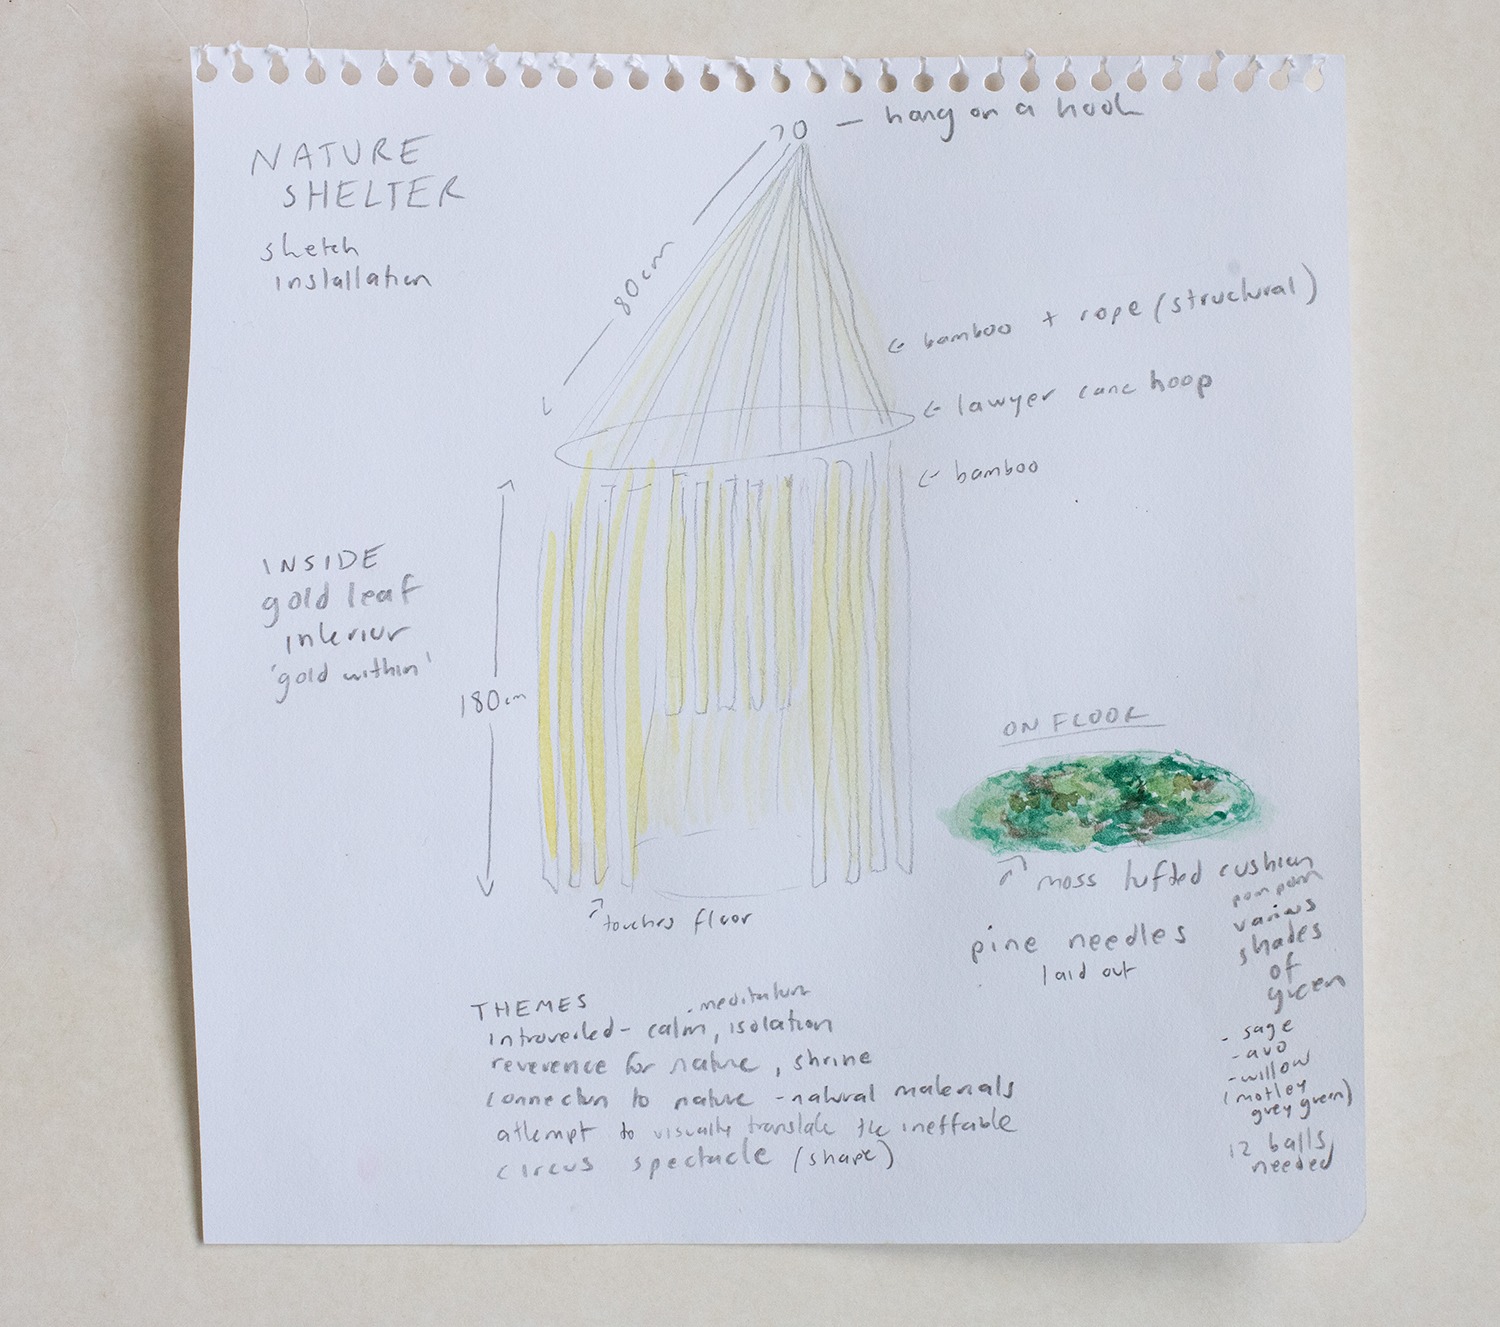 NATURE
SHELTER
sketch
installation
— hang on a hook
80cm
← bamboo + rope (structural)
← lawyer cane hoop
← bamboo
INSIDE
gold leaf
interior
'gold within'
180cm
touches floor
ON FLOOR
moss tufted cushion
pom pom
various
shades
of
green
- sage
- avo
- willow
(motley
grey green)
12 balls
needed
pine needles
laid out
THEMES
meditation
introverted - calm, isolation
reverence for nature, shrine
connection to nature - natural materials
attempt to visually translate the ineffable
circus spectacle (shape)